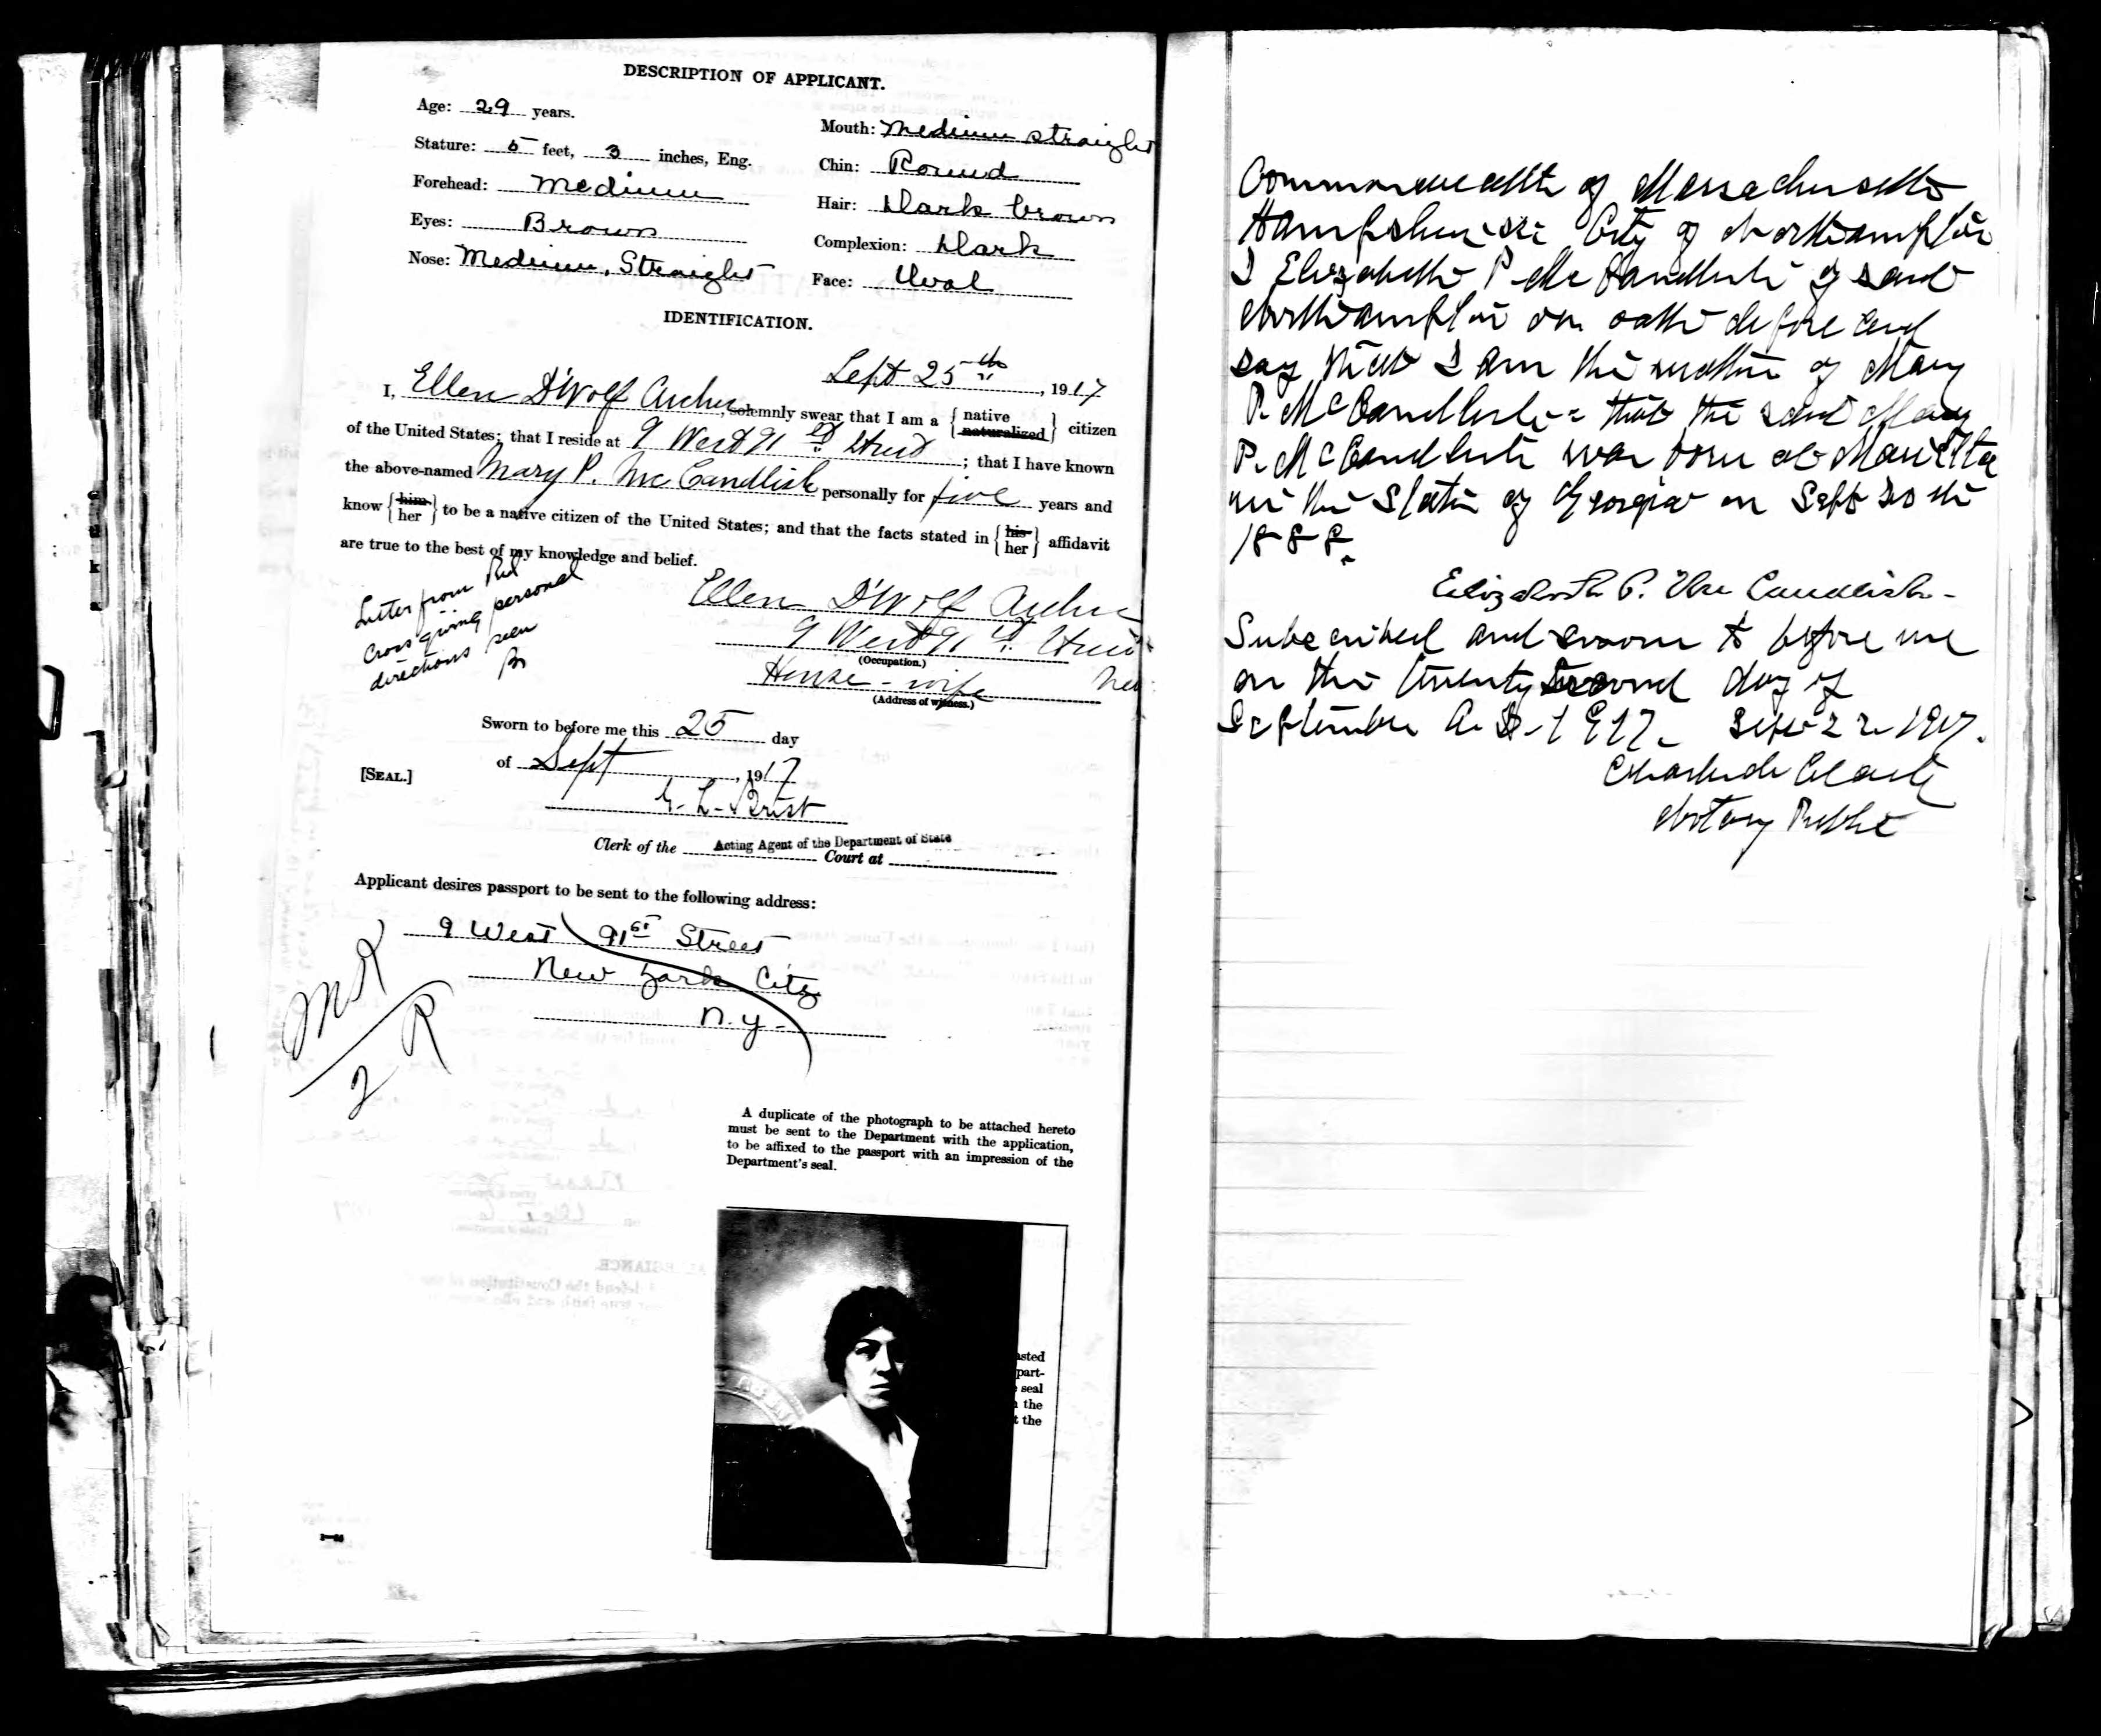 DESCRIPTION OF APPLICANT.
Age: 29 years.
Stature: 5 feet, 3 inches, Eng.
Forehead: Medium
Eyes: Brown
Nose: Medium, Straight
Mouth: Medium straight
Chin: Round
Hair: Dark brown
Complexion: Dark
Face: Oval
IDENTIFICATION.
Sept 25th, 1917
I, Ellen D'Wolf Archer, solemnly swear that I am a { native naturalized } citizen
of the United States; that I reside at 9 West 91st Street; that I have known
the above-named Mary P. McCandlish personally for five years and
know { him her } to be a native citizen of the United States; and that the facts stated in { his her } affidavit
are true to the best of my knowledge and belief.
Letter from Red
Cross giving personal
directions seen
Ellen D'Wolf Archer
9 West 91st Street
(Occupation.)
House-wife
(Address of witness.)
Sworn to before me this 25 day
of Sept, 1917
[SEAL.]
Clerk of the Acting Agent of the Department of State
Court at
Applicant desires passport to be sent to the following address:
9 West 91st Street
New York City
N.Y.
A duplicate of the photograph to be attached hereto
must be sent to the Department with the application,
to be affixed to the passport with an impression of the
Department's seal.
asted
part-
seal
the
t the
Commonwealth of Massachusetts
Hampshire ss. City of Northampton
I Elizabeth P. McCandlish of said
Northampton on oath depose and
say that I am the mother of Mary
P. McCandlish - that the said Mary
P. McCandlish was born at Marietta
in the State of Georgia on Sept 20th
1888.
Elizabeth P. McCandlish-
Subscribed and sworn to before me
on this twenty second day of
September A.D. 1917. Sept 22 1917.
Clark
Notary Public